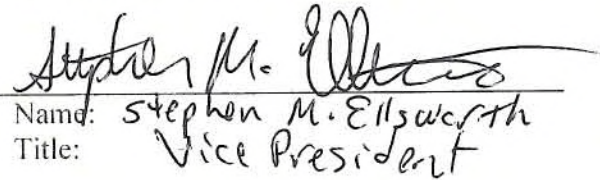 Stephen M. Ellsworth
Name: Stephen M. Ellsworth
Title: Vice President